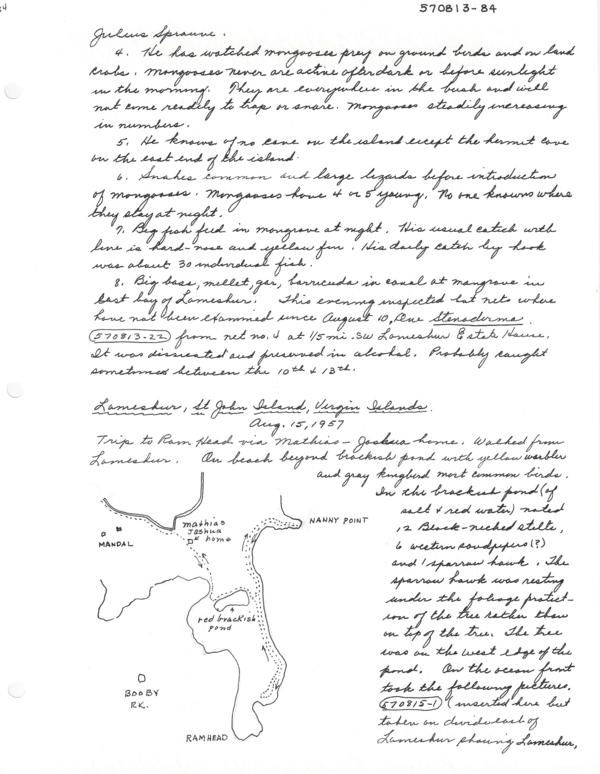 570813-84
Julius Sprauve.
4. He has watched mongooses prey on ground birds and on land
crabs. Mongooses never are active after dark or before sunlight
in the morning. They are everywhere in the bush and will
not come readily to trap or snare. Mongooses steadily increasing
in numbers.
5. He knows of no cave on the island except the hermit cave
on the east end of the island.
6. Snakes common and large lizards before introduction
of mongooses. Mongooses have 4 or 5 young. No one knowns where
they stay at night.
7. Big fish feed in mongrove at night. His usual catch with
line is hard-nose and yellow fin. His daily catch by hook
was about 30 individual fish.
8. Big bass, mullet, gar, barricuda in canal at mangrove in
East bay of Lameshur. This evening inspected bat nets where
have not been examined since August 10. One Stenoderma
570813-22 from net no. 4 at 1/5 mi. SW Lameshur Estate House.
It was dissicated and preserved in alcohol. Probably caught
sometimes between the 10th & 13th.
Lameshur, St John Island, Virgin Islands.
Aug. 15, 1957
Trip to Ram Head via Mathias-Joshua home. Walked from
Lameshur. On beach beyond brackish pond with yellow warbler
and gray kingbird most common birds.
In the brackish pond (of
salt & red water) noted
12 Black-necked stilts,
6 western sandpipers (?)
and 1 sparrow hawk. The
sparrow hawk was resting
under the foliage protect-
ion of the tree rather than
on top of the tree. The tree
was on the west edge of the
pond. On the ocean front
took the following pictures.
570815-1 (inserted here but
taken on divide east of
Lameshur showing Lameshur,
MANDAL
mathias
Joshua
home
NANNY POINT
red brackish
pond
BOOBY
RK.
RAM HEAD